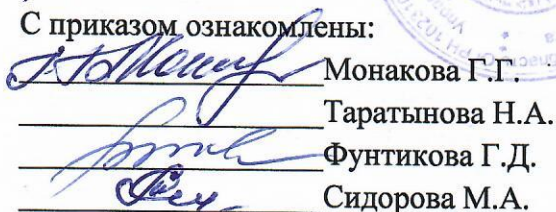 С приказом ознакомлены:
Монакова Г.Г.
Таратынова Н.А.
Фунтикова Г.Д.
Сидорова М.А.